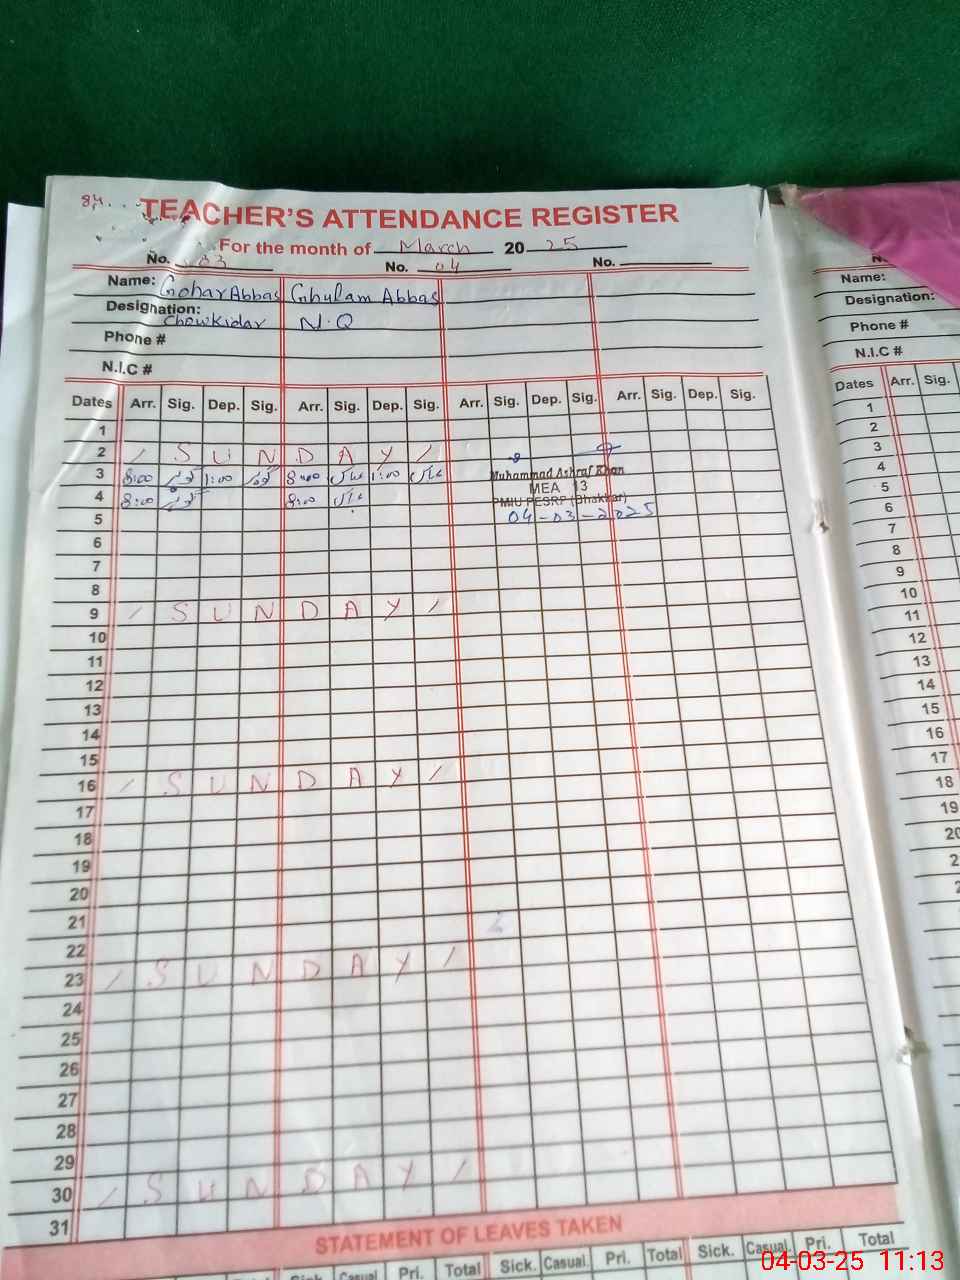 84.
TEACHER'S ATTENDANCE REGISTER
For the month of March 20 25
No. 03 No. 04 No.
Name: Gohar Abbas Ghulam Abbas
Designation: Chowkidar N.Q
Phone #
N.I.C #
Dates Arr. Sig. Dep. Sig. Arr. Sig. Dep. Sig. Arr. Sig. Dep. Sig. Arr. Sig. Dep. Sig.
1
2 / S U N D A Y /
3 8:00 گوہر 1:00 گوہر 8:00 عباس 1:00 عباس Muhammad Ashraf Khan
MEA 13
4 8:00 گوہر 8:00 عباس PMIU PESRP (Bhakkar)
5 04-03-2025
6
7
8
9 / S U N D A Y /
10
11
12
13
14
15
16 / S U N D A Y /
17
18
19
20
21
22
23 / S U N D A Y /
24
25
26
27
28
29
30 / S U N D A Y /
31
STATEMENT OF LEAVES TAKEN
Sick. Casual Pri. Total Sick. Casual. Pri. Total Sick. Casual. Pri. Total
No.
Name:
Designation:
Phone #
N.I.C #
Dates Arr. Sig.
1
2
3
4
5
6
7
8
9
10
11
12
13
14
15
16
17
18
19
20
04-03-25 11:13